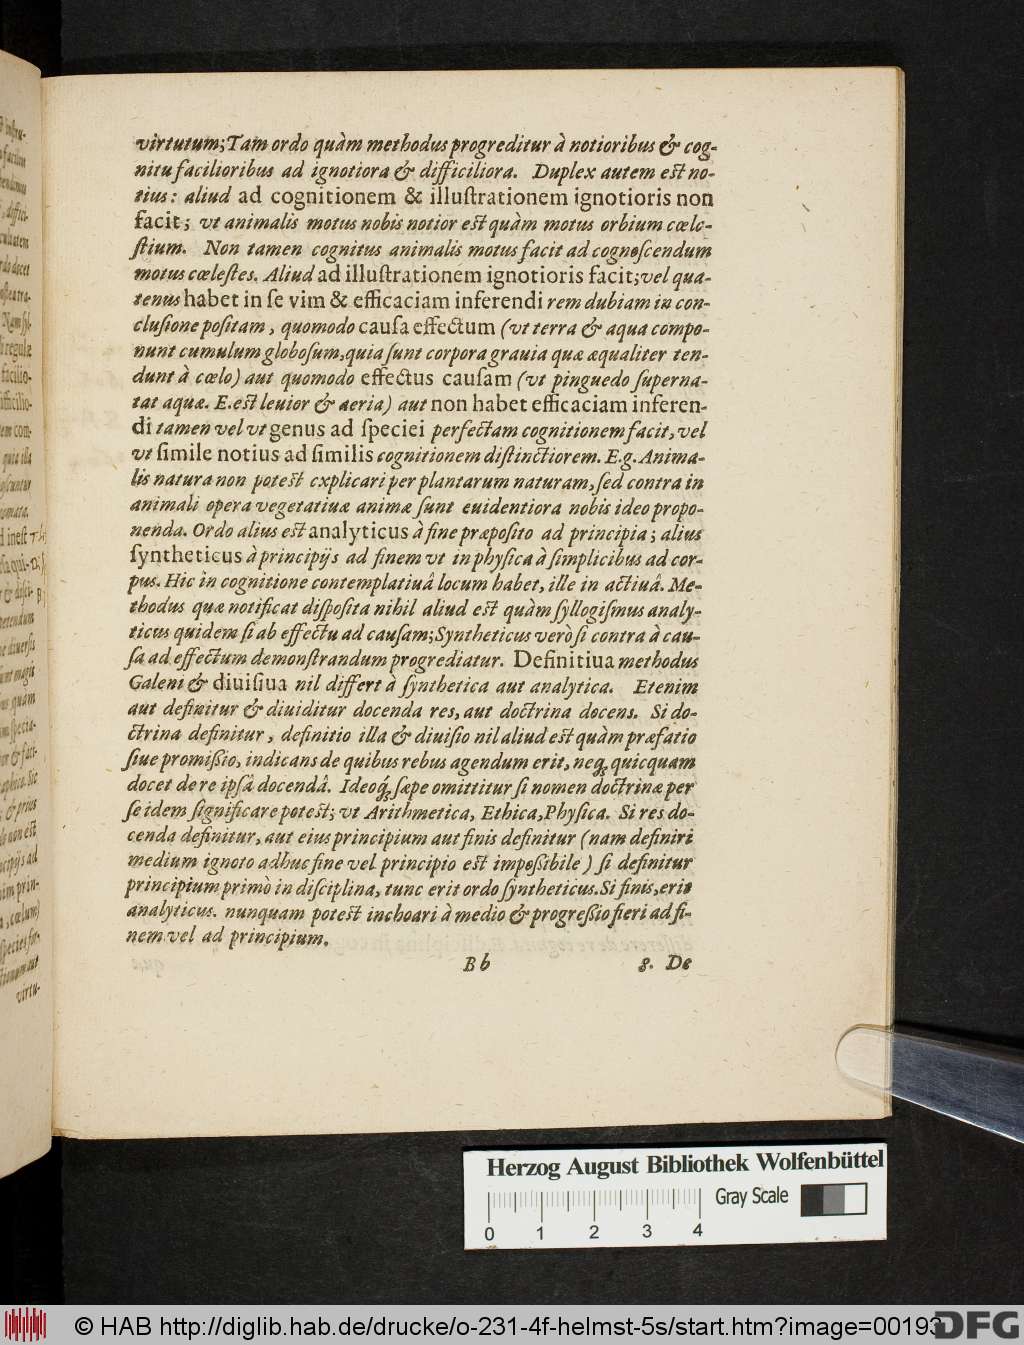 virtutum; Tam ordo quàm methodus progreditur à notioribus & cog-
nitu facilioribus ad ignotiora & difficiliora. Duplex autem est no-
tius: aliud ad cognitionem & illuſtrationem ignotioris non
facit; vt animalis motus nobis notior est quàm motus orbium cœle-
ſtium. Non tamen cognitus animalis motus facit ad cognoſcendum
motus cœleſtes. Aliud ad illuſtrationem ignotioris facit; vel qua-
tenus habet in ſe vim & efficaciam inferendi rem dubiam in con-
cluſione poſitam, quomodo cauſa effectum (vt terra & aqua compo-
nunt cumulum globoſum, quia ſunt corpora grauia quæ æqualiter ten-
dunt à cœlo) aut quomodo effectus cauſam (vt pinguedo ſuperna-
tat aquæ. E. est leuior & aeria) aut non habet efficaciam inferen-
di tamen vel vt genus ad ſpeciei perfectam cognitionem facit, vel
vt ſimile notius ad ſimilis cognitionem diſtinctiorem. E.g. Anima-
lis natura non potest explicari per plantarum naturam, ſed contra in
animali opera vegetatiuæ animæ ſunt euidentiora nobis ideo propo-
nenda. Ordo alius est analyticus à fine præpoſito ad principia; alius
ſyntheticus à principijs ad finem vt in phyſica à ſimplicibus ad cor-
pus. Hic in cognitione contemplatiuâ locum habet, ille in actiuâ. Me-
thodus quæ notificat diſpoſita nihil aliud est quàm ſyllogiſmus analy-
ticus quidem ſi ab effectu ad cauſam; Syntheticus verò ſi contra à cau-
ſa ad effectum demonſtrandum progrediatur. Definitiua methodus
Galeni & diuiſiua nil differt à ſynthetica aut analytica. Etenim
aut definitur & diuiditur docenda res, aut doctrina docens. Si do-
ctrina definitur, definitio illa & diuiſio nil aliud est quàm præfatio
ſiue promiſſio, indicans de quibus rebus agendum erit, neq; quicquam
docet de re ipſâ docendâ. Ideoq́; ſæpe omittitur ſi nomen doctrinæ per
ſe idem ſignificare potest; vt Arithmetica, Ethica, Phyſica. Si res do-
cenda definitur, aut eius principium aut finis definitur (nam definiri
medium ignoto adhuc fine vel principio est impoſſibile) ſi definitur
principium primò in diſciplina, tunc erit ordo ſyntheticus. Si finis, erit
analyticus. nunquam potest inchoari à medio & progreſſio fieri ad fi-
nem vel ad principium.
Bb 8. De
Herzog August Bibliothek Wolfenbüttel
Gray Scale
0 1 2 3 4
© HAB http://diglib.hab.de/drucke/o-231-4f-helmst-5s/start.htm?image=00193
DFG